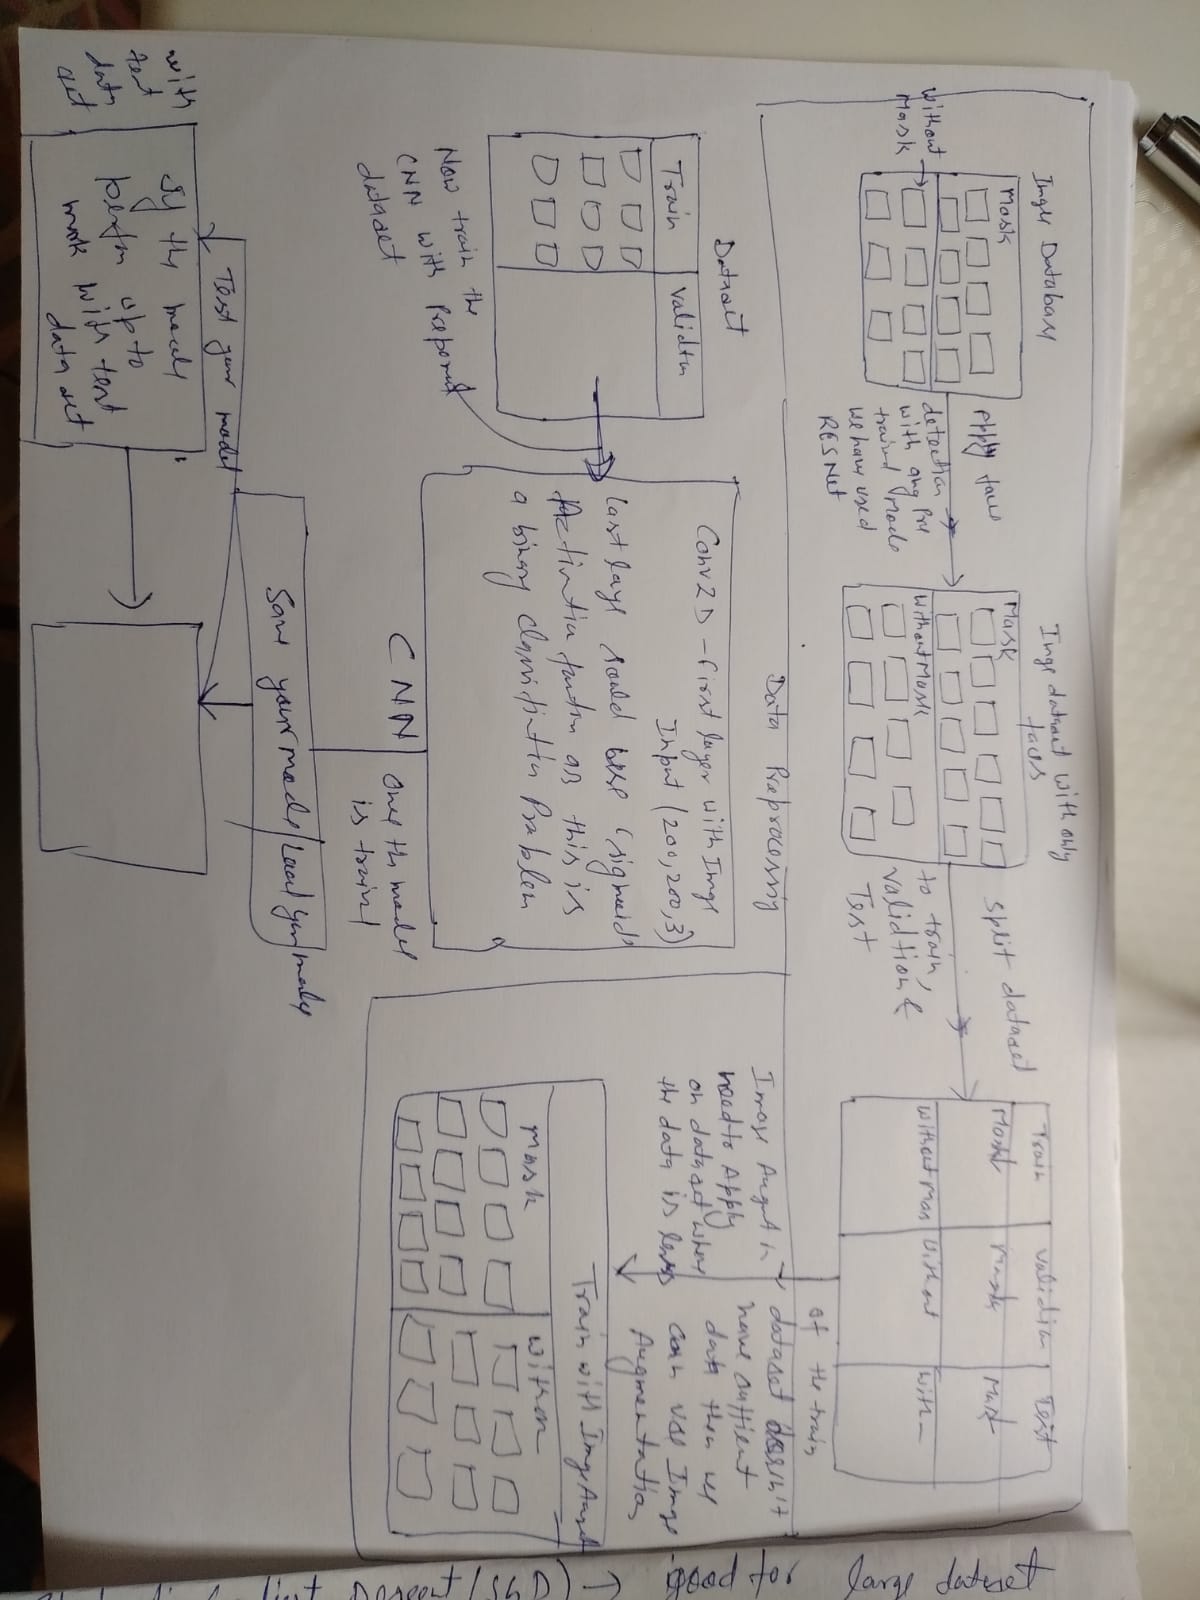 Image Database
Mask
Without
Mask
Apply face
detection
with any Pre
trained Mode
we have used
RESNet
Image dataset with only
faces
Mask
Without Mask
split dataset
to train,
validtion &
Test
Train
Validian
Test
Mask
Mask
Mask
Without Mas
Without
With
Data Preprocessing
Image Augnt
need to Apply
on dataset where
the data is less
of the train
dataset doesn't
have suffient
data then we
can use Image
Augmentation
Train with Image
Mask
Withon
Dataset
Train
Validtn
Now train the
CNN with
dataset
Conv2D - first layer with Image
Input (200,200,3)
last laye sould use 'sigmoid'
Activation as this is
a binary Problem
CNN
Once the model
is traind
Save your mode / Load your mode
Test your model
with
test
data
set
If the mode
perfom up to
mark with test
data set
good for large dataset